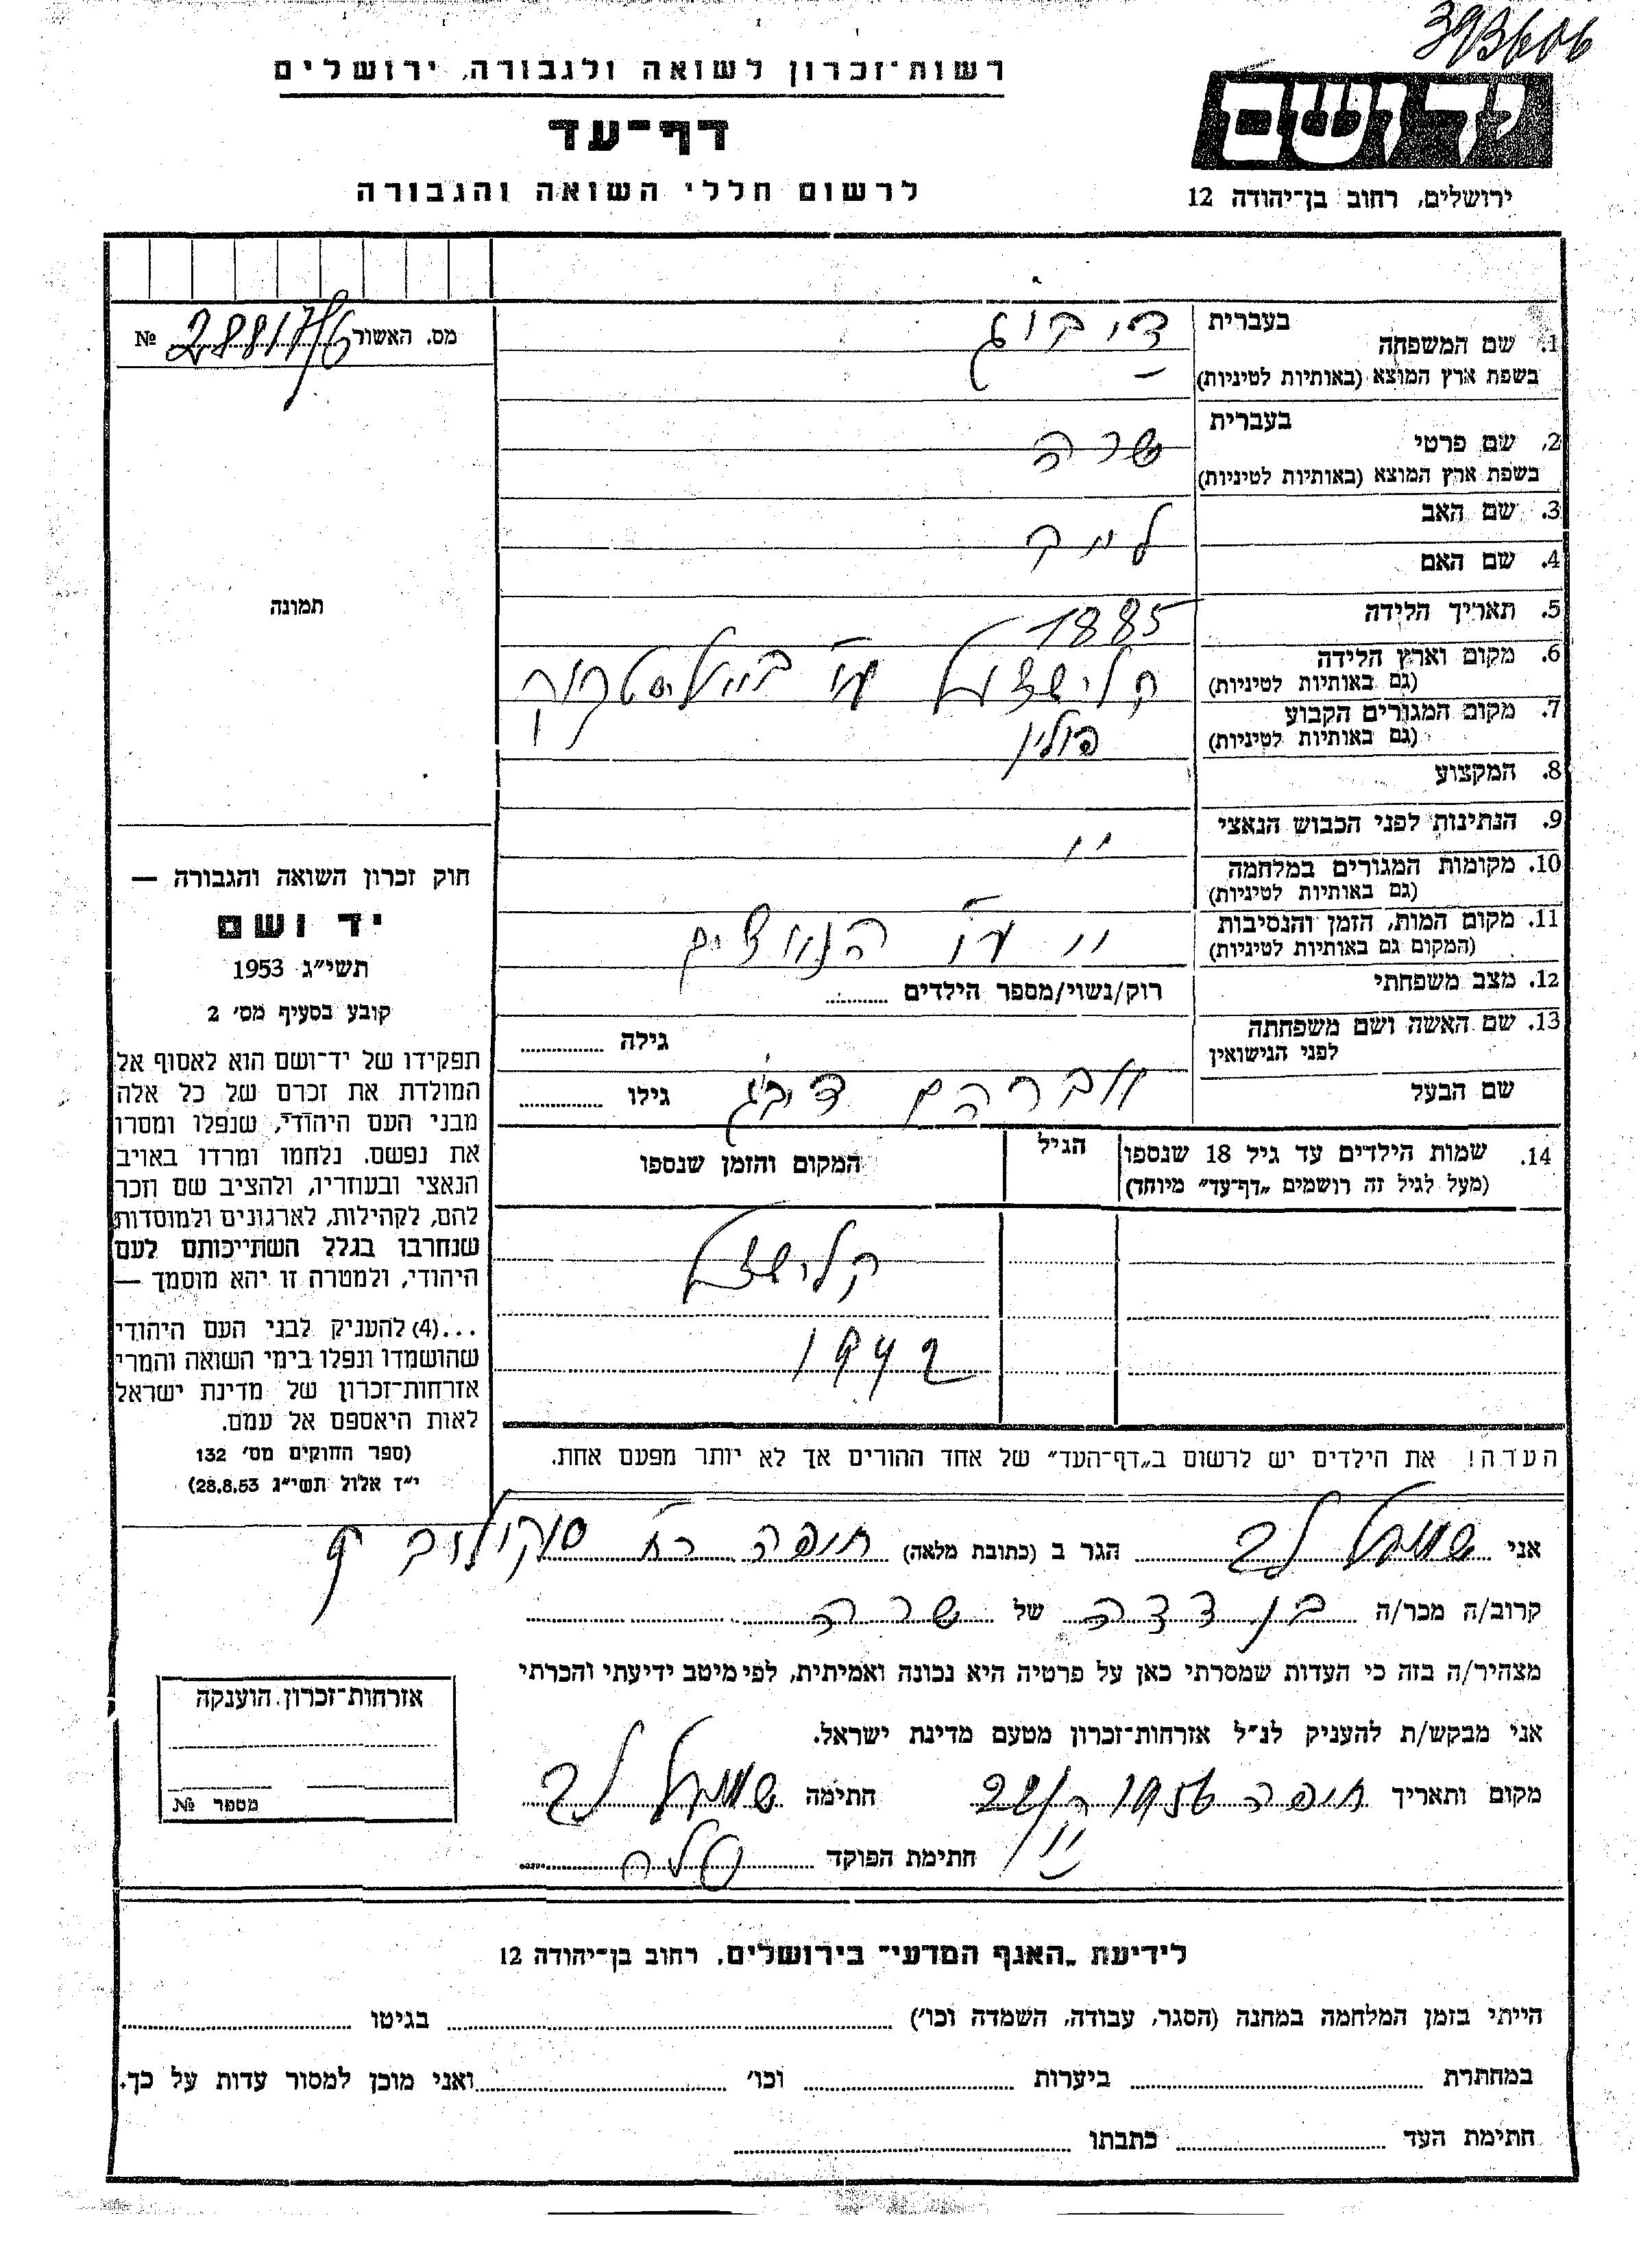 393606
רשות־זכרון לשואה ולגבורה, ירושלים
יד ושם
דף־עד
לרשום חללי השואה והגבורה
ירושלים, רחוב בן־יהודה 12
מס. האשור 28817/6 №
1. שם המשפחה
בעברית
בשפת ארץ המוצא (באותיות לטיניות)
2. שם פרטי
בעברית שרה
בשפת ארץ המוצא (באותיות לטיניות)
3. שם האב
4. שם האם
5. תאריך הלידה 1885
6. מקום וארץ הלידה
(גם באותיות לטיניות)
7. מקום המגורים הקבוע פולין
(גם באותיות לטיניות)
8. המקצוע
9. הנתינות לפני הכבוש הנאצי
10. מקומות המגורים במלחמה "
(גם באותיות לטיניות)
11. מקום המות, הזמן והנסיבות " ע"י הנאצים
(המקום גם באותיות לטיניות)
12. מצב משפחתי רוק/נשוי/מספר הילדים
13. שם האשה ושם משפחתה
לפני הנישואין
גילה
שם הבעל אברהם
גילו
14. שמות הילדים עד גיל 18 שנספו
(מעל לגיל זה רושמים „דף־עד" מיוחד)
הגיל
המקום והזמן שנספו
1942
הערה! את הילדים יש לרשום ב„דף־העד" של אחד ההורים אך לא יותר מפעם אחת.
תמונה
חוק זכרון השואה והגבורה —
יד ושם
תשי"ג 1953
קובע בסעיף מס' 2
תפקידו של יד־ושם הוא לאסוף אל
המולדת את זכרם של כל אלה
מבני העם היהודי, שנפלו ומסרו
את נפשם, נלחמו ומרדו באויב
הנאצי ובעוזריו, ולהציב שם וזכר
להם, לקהילות, לארגונים ולמוסדות
שנחרבו בגלל השתייכותם לעם
היהודי, ולמטרה זו יהא מוסמך —
...(4) להעניק לבני העם היהודי
שהושמדו ונפלו בימי השואה והמרי
אזרחות־זכרון של מדינת ישראל
לאות היאספם אל עמם.
(ספר החוקים מס' 132
י"ז אלול תשי"ג 28.8.53)
אני שמואל לב הגר ב (כתובת מלאה) חיפה רח' סוקולוב
קרוב/ה מכר/ה בן דדה של שרה
מצהיר/ה בזה כי העדות שמסרתי כאן על פרטיה היא נכונה ואמיתית, לפי מיטב ידיעתי והכרתי
אני מבקש/ת להעניק לנ"ל אזרחות־זכרון מטעם מדינת ישראל.
מקום ותאריך חיפה 1956 חתימה שמואל לב
חתימת הפוקד
אזרחות־זכרון הוענקה
מספר №
לידיעת „האגף המדעי" בירושלים, רחוב בן־יהודה 12
הייתי בזמן המלחמה במחנה (הסגר, עבודה, השמדה וכו') בגיטו
במחתרת ביערות וכו' ואני מוכן למסור עדות על כך.
חתימת העד כתבתו